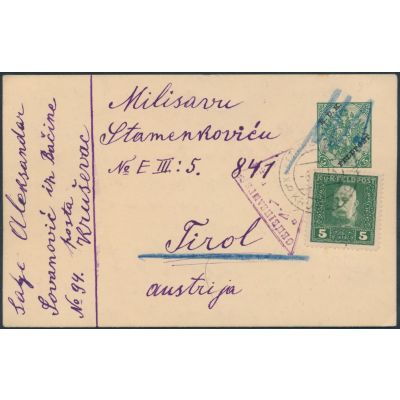 Milisavu
Stamenkoviću
№ E III: 5. 841
Tirol
austrija
Aleksandar
Jovanović iz Bačine
posta
№ 94. Kruševac
K.U.K. FELDPOST
5 5